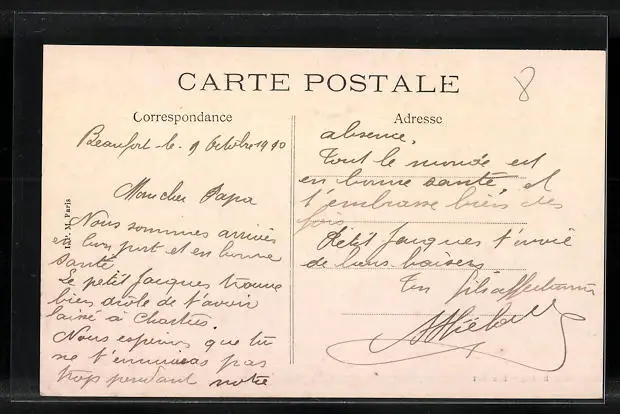 CARTE POSTALE
8
Correspondance
Beaufort le 9 Octobre 1910
Mon cher Papa
Nous sommes arrivés
à bon port et en bonne
santé
Le petit Jacques trouve
bien drôle de t'avoir
laissé à Chartres.
Nous espérons que tu
ne t'ennuieras pas
trop pendant notre
Adresse
absence.
Tout le monde est
en bonne santé, et
t'embrasse bien des
fois
Petit Jacques t'envoie
de bons baisers
Ton fils affectionné
IMP. M. Paris